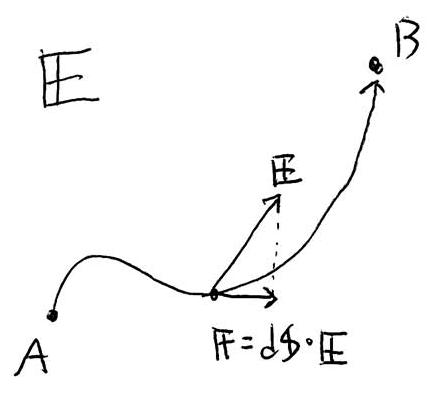 𝔼
B
𝔼
A
𝔽=d𝕊·𝔼